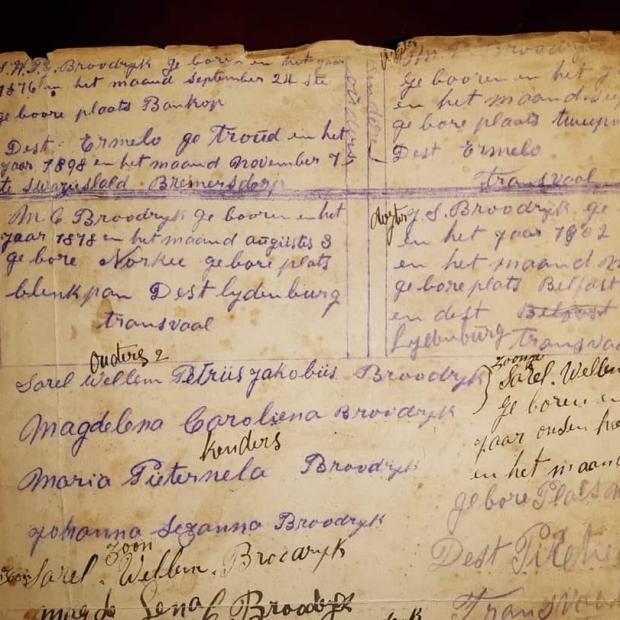 S.W.P.J. Broodryk ge booren en het jaar
1876 en het maand September 24 ste
ge boore plaats Bankop
Dest. Ermelo ge troud en het
jaar 1898 en het maand november 7
te Swazieslald Bremersdorp
M C Broodryk ge booren en het
jaar 1878 en het maand augustus 3
ge bore Norkee ge bore plats
blenkpan Dest lydenburg
transvaal
ouders
kenders
Broodryk
ge booren en het
en het maand
ge bore plaats
Dest Ermelo
transvaal
dogter J. S. Broodryk ge
en het jaar 1902
en het maand
ge bore plats Belfast
en dest Belfast
Lydenburg transvaal
ouders 2
Sarel Wellem Petrus jakobus Broodryk
Magdelena Caroliena Broodryk
kenders
Maria Pieternela Broodryk
johanna Sezanna Broodryk
zoon
Sarel. Wellem. Broodryk
magde Lena C Broodryk
zoon
Sarel. Wellem
ge booren en
jaar
en het maand
ge bore Plats
Dest
Transvaal